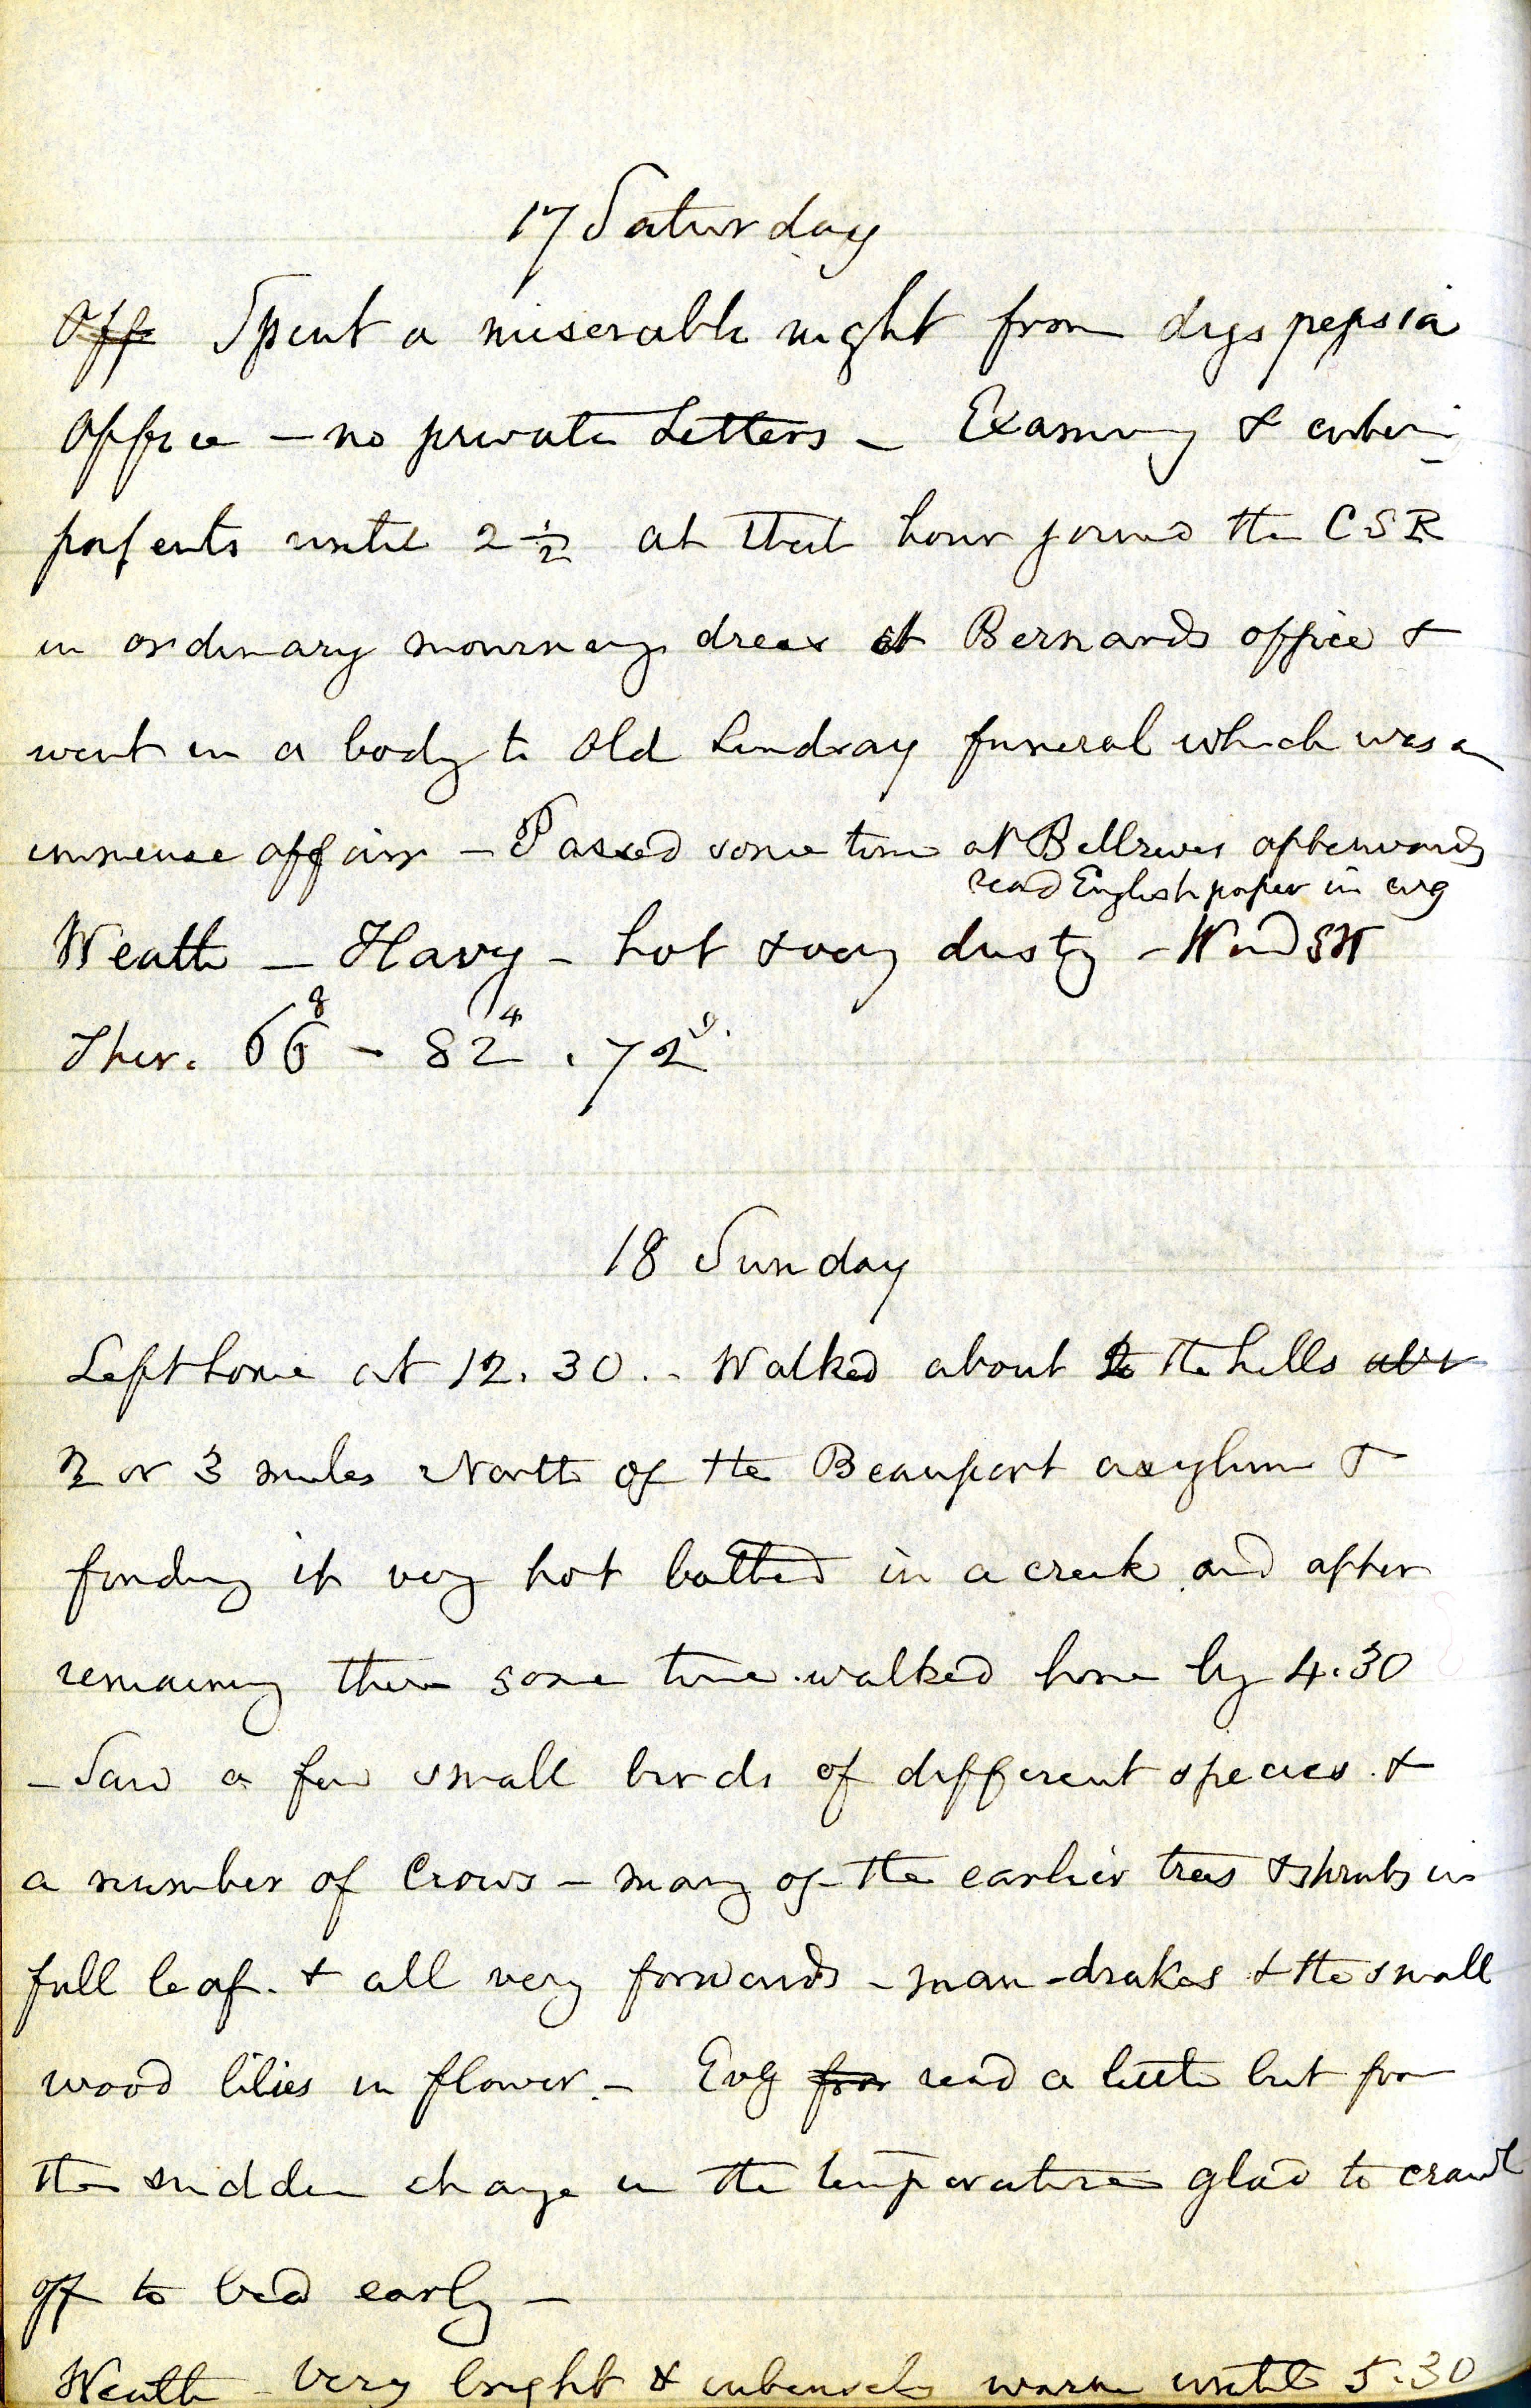 17 Saturday
Off Spent a miserable night from dyspepsia
Office – no private Letters – Examining &
patents until 2 1/2 at that hour joined the CSR
in ordinary mourning dress at Bernards office &
went in a body to Old Lindsay funeral which was an
immense affair – Passed some time at Bellevues afterwards
read English paper in evg
Weath – Hazy – hot & very dusty – Wind SW
Ther. 66 8 – 82 4 . 72 0.
18 Sunday
Left home at 12.30 .. Walked about to the hills
2 or 3 miles North of the Beauport asylum &
finding it very hot bathed in a creek and after
remaining there some time walked home by 4.30
– Saw a few small birds of different species &
a number of Crows – many of the earlier trees & shrubs in
full leaf. & all very forwards – man-drakes & the small
wood lilies in flower. – Evg for read a little but from
the sudden change in the temperature glad to crawl
off to bed early –
Weath – Very bright & intensely warm until 5.30